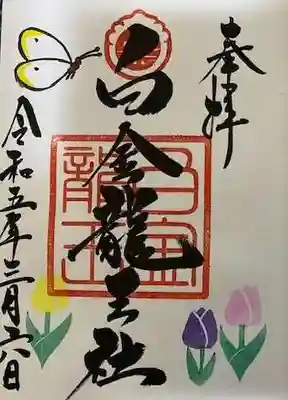 奉拝
白金龍王社
白金龍王
令和五年三月二八日